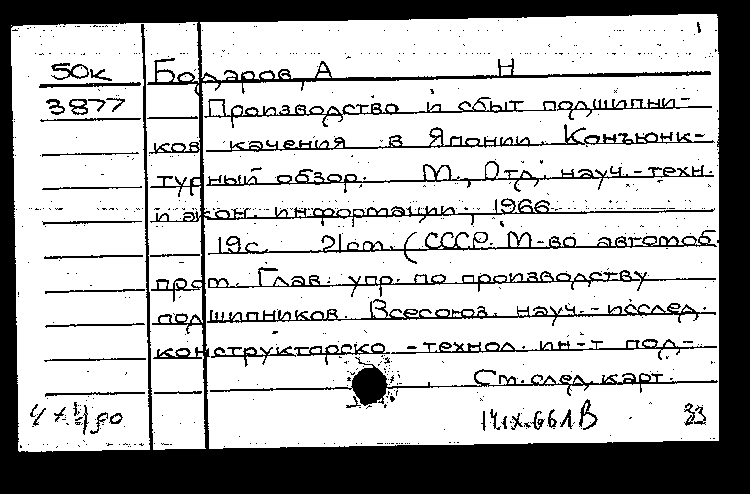 1
50к Бодаров, А Н
3877 Производство и сбыт подшипни-
ков качения в Японии. Конъюнк-
турный обзор. М., Отд. науч.-техн.
и экон. информации, 1966
19с. 21см. (СССР. М-во автомоб.
пром. Глав. упр. по производству
подшипников. Всесоюз. науч.-исслед.
конструкторско-технол. ин-т под-
См. след. карт.
14.IX.66 33